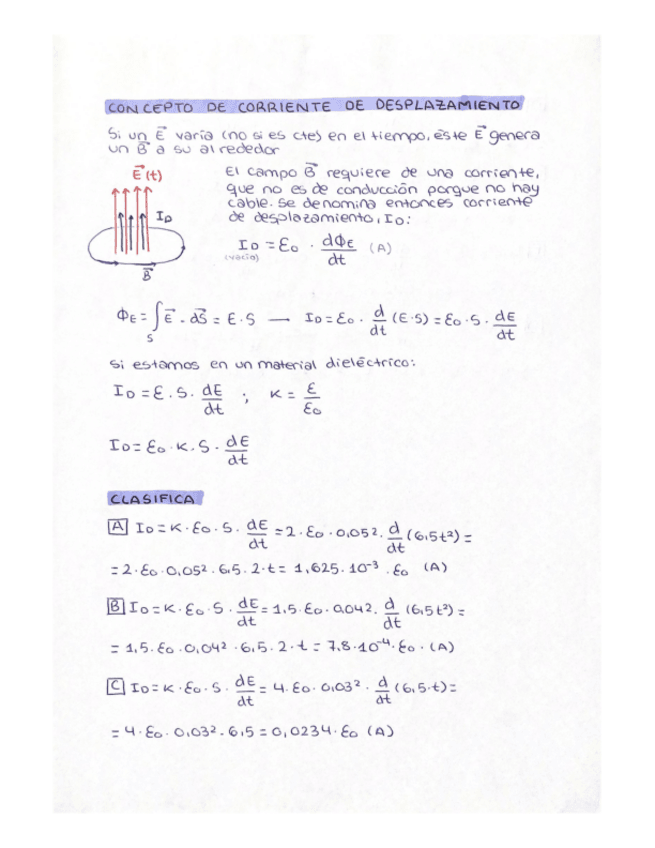 CONCEPTO DE CORRIENTE DE DESPLAZAMIENTO
Si un E⃗ varía (no si es cte) en el tiempo, éste E⃗ genera
un B⃗ a su alrededor
E⃗(t)
I_D
B⃗
El campo B⃗ requiere de una corriente,
que no es de conducción porque no hay
cable. Se denomina entonces corriente
de desplazamiento, I_D:
I_D = ε₀ · dΦ_E/dt (A)
(vacío)
Φ_E = ∫_S E⃗ · dS⃗ = E·S — I_D = ε₀ · d/dt (E·S) = ε₀·S· dE/dt
Si estamos en un material dieléctrico:
I_D = ε·S· dE/dt ; K = ε/ε₀
I_D = ε₀·K·S· dE/dt
CLASIFICA
A I_D = K·ε₀·S· dE/dt = 2·ε₀·0,05²· d/dt (6,5t²) =
= 2·ε₀·0,05²·6,5·2·t = 1,625·10⁻³·ε₀ (A)
B I_D = K·ε₀·S· dE/dt = 1,5·ε₀·0,04²· d/dt (6,5t²) =
= 1,5·ε₀·0,04²·6,5·2·t = 7,8·10⁻⁴·ε₀·(A)
C I_D = K·ε₀·S· dE/dt = 4·ε₀·0,03²· d/dt (6,5·t) =
= 4·ε₀·0,03²·6,5 = 0,0234·ε₀ (A)